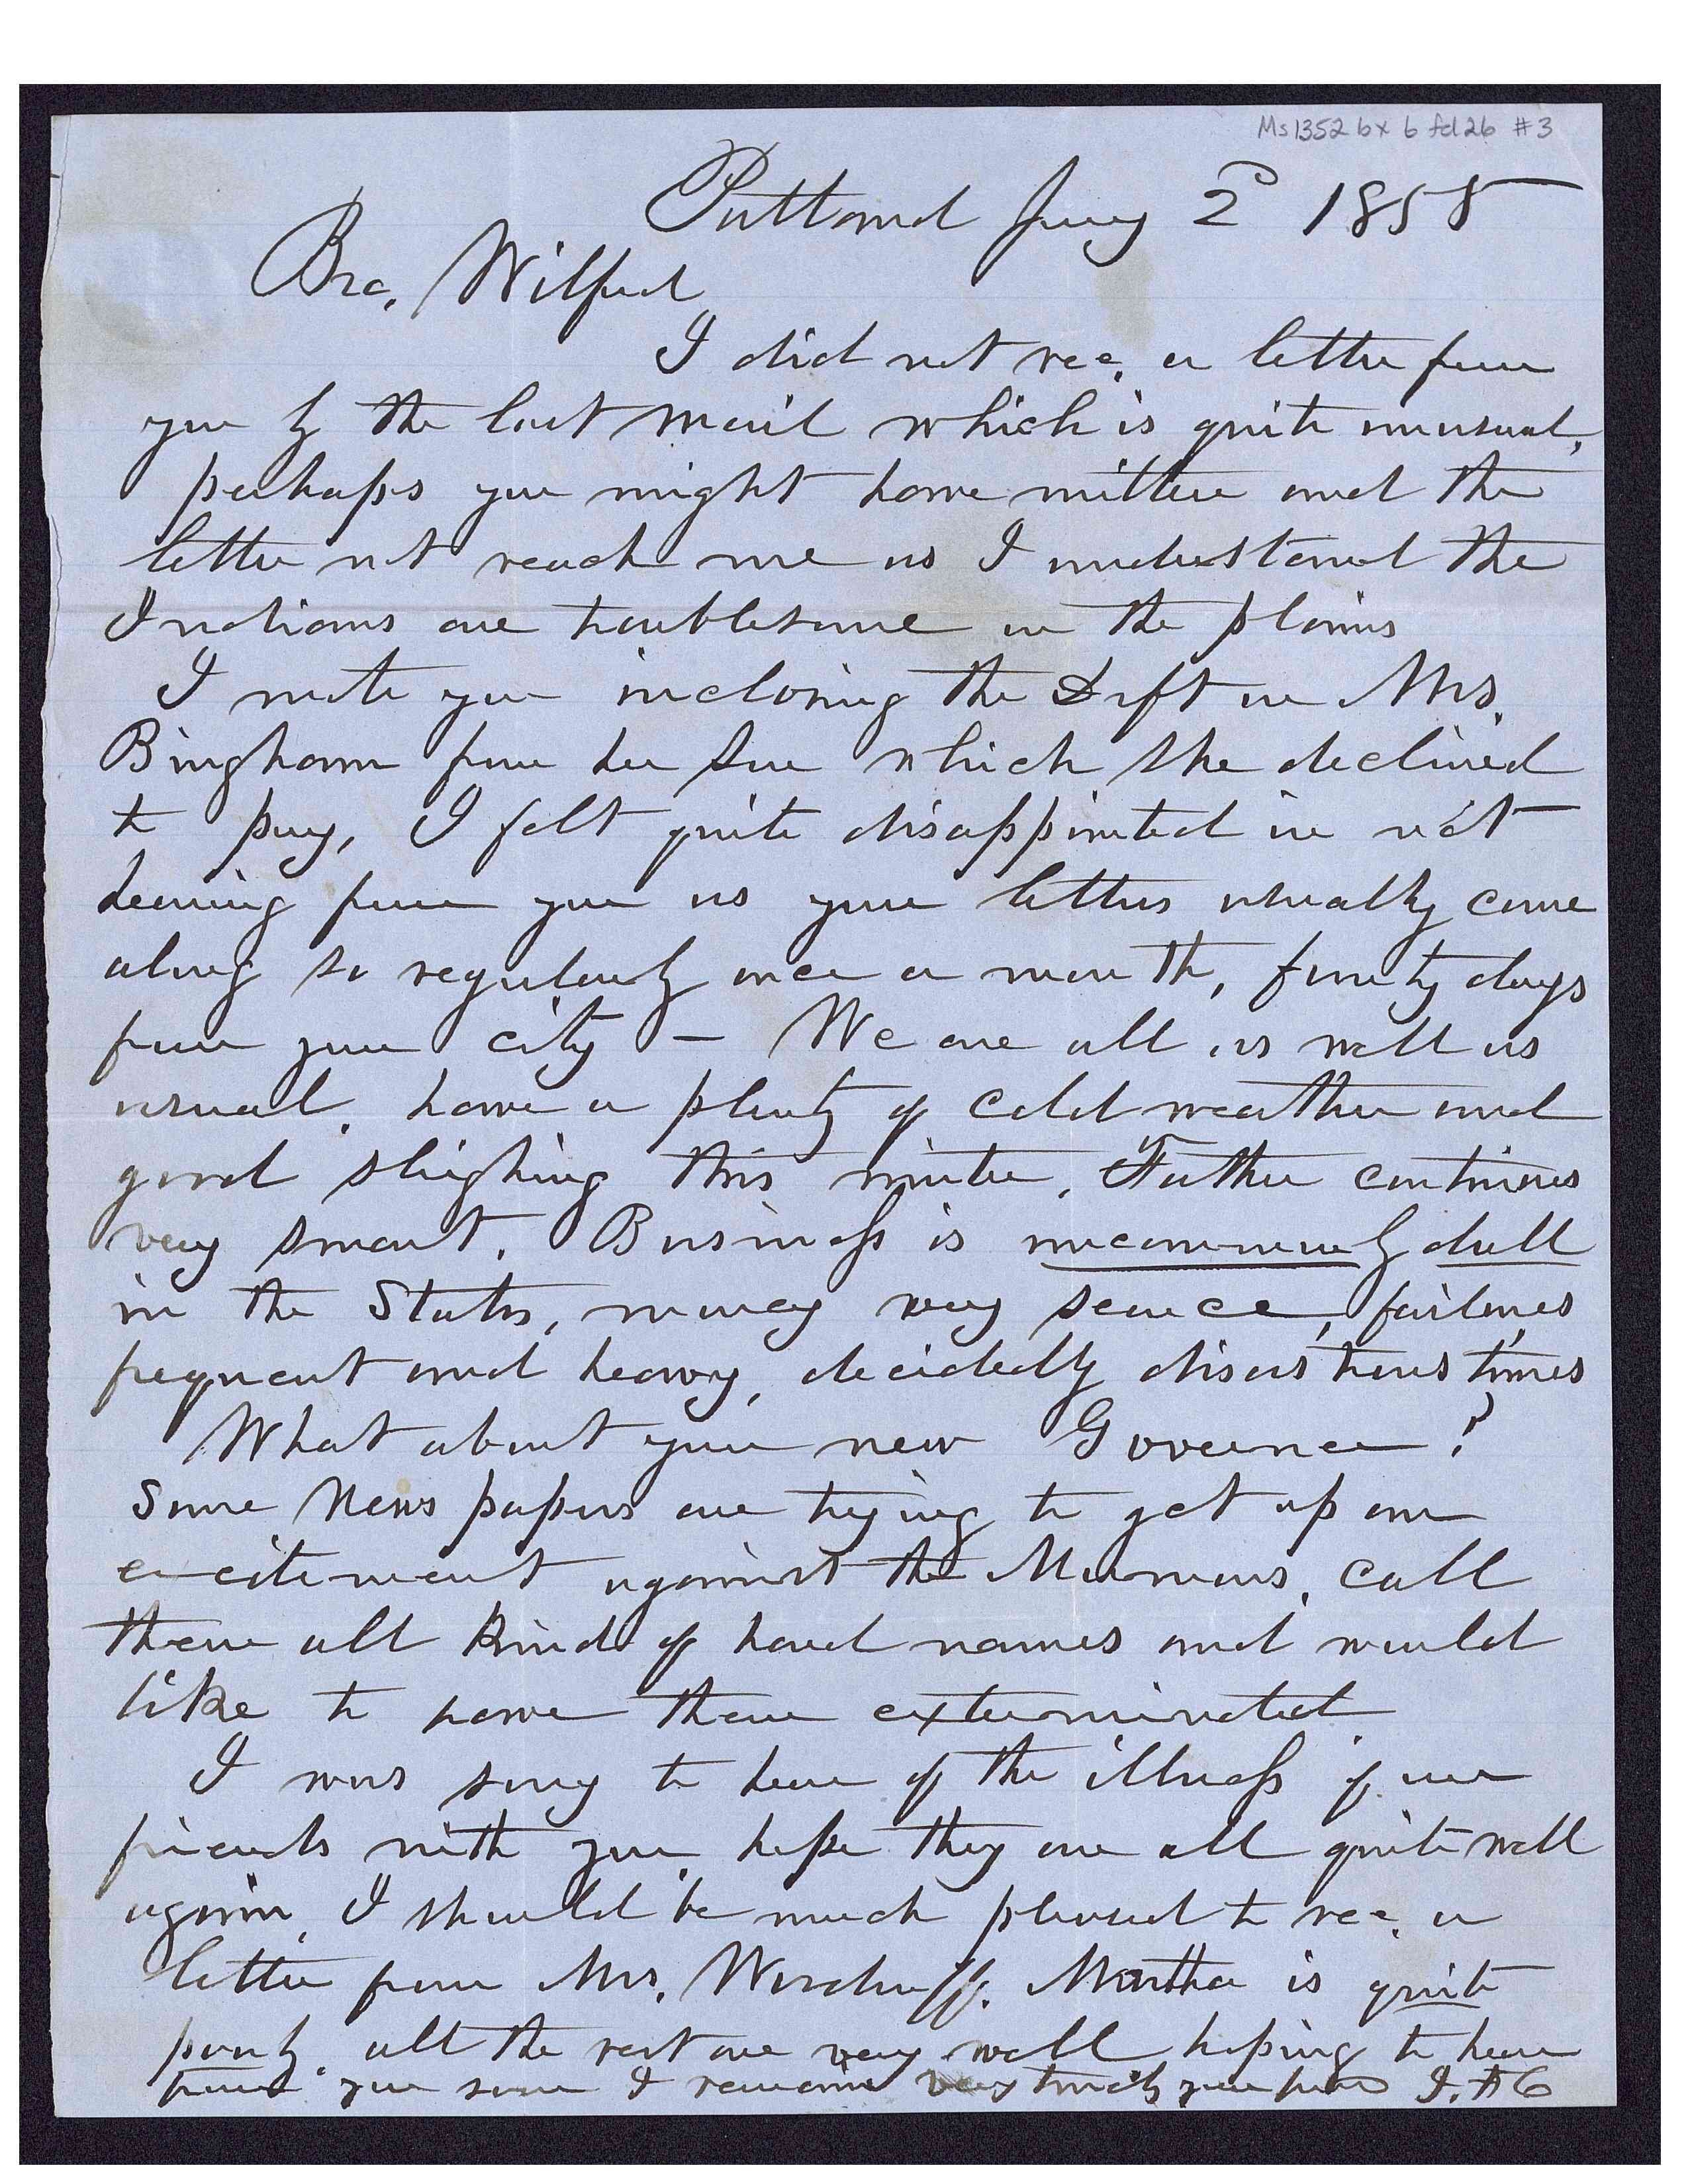 Ms 1352 bx 6 fd 26 #3
Portland Jany 2d 1855
Bro. Wilford
I did not rec. a letter from
you by the last mail which is quite unusual,
perhaps you might have written and the
letter not reach me as I understand the
Indians are troublesome on the plains
I wrote you inclosing the Dft on Mrs.
Bingham from her Son which she declined
to pay, I felt quite disappointed in not
hearing from you as your letters usually come
along so regularly once a month, forty days
from your city – We are all as well as
usual, have a plenty of cold weather and
good sleighing this winter, Father continues
very smart. Business is uncommonly dull
in the States, money very scarce, failures
frequent and heavy, decidedly disastrous times
What about your new Governor?
Some News papers are trying to get up an
excitement against the Mormons, call
them all kind of hard names and would
like to have them exterminated
I was sorry to hear of the illness of our
friends with you, hope they are all quite well
again, I should be much pleased to rec. a
letter from Mrs. Woodruff. Martha is quite
poorly, all the rest are very well hoping to hear
from you soon I remain very truly your